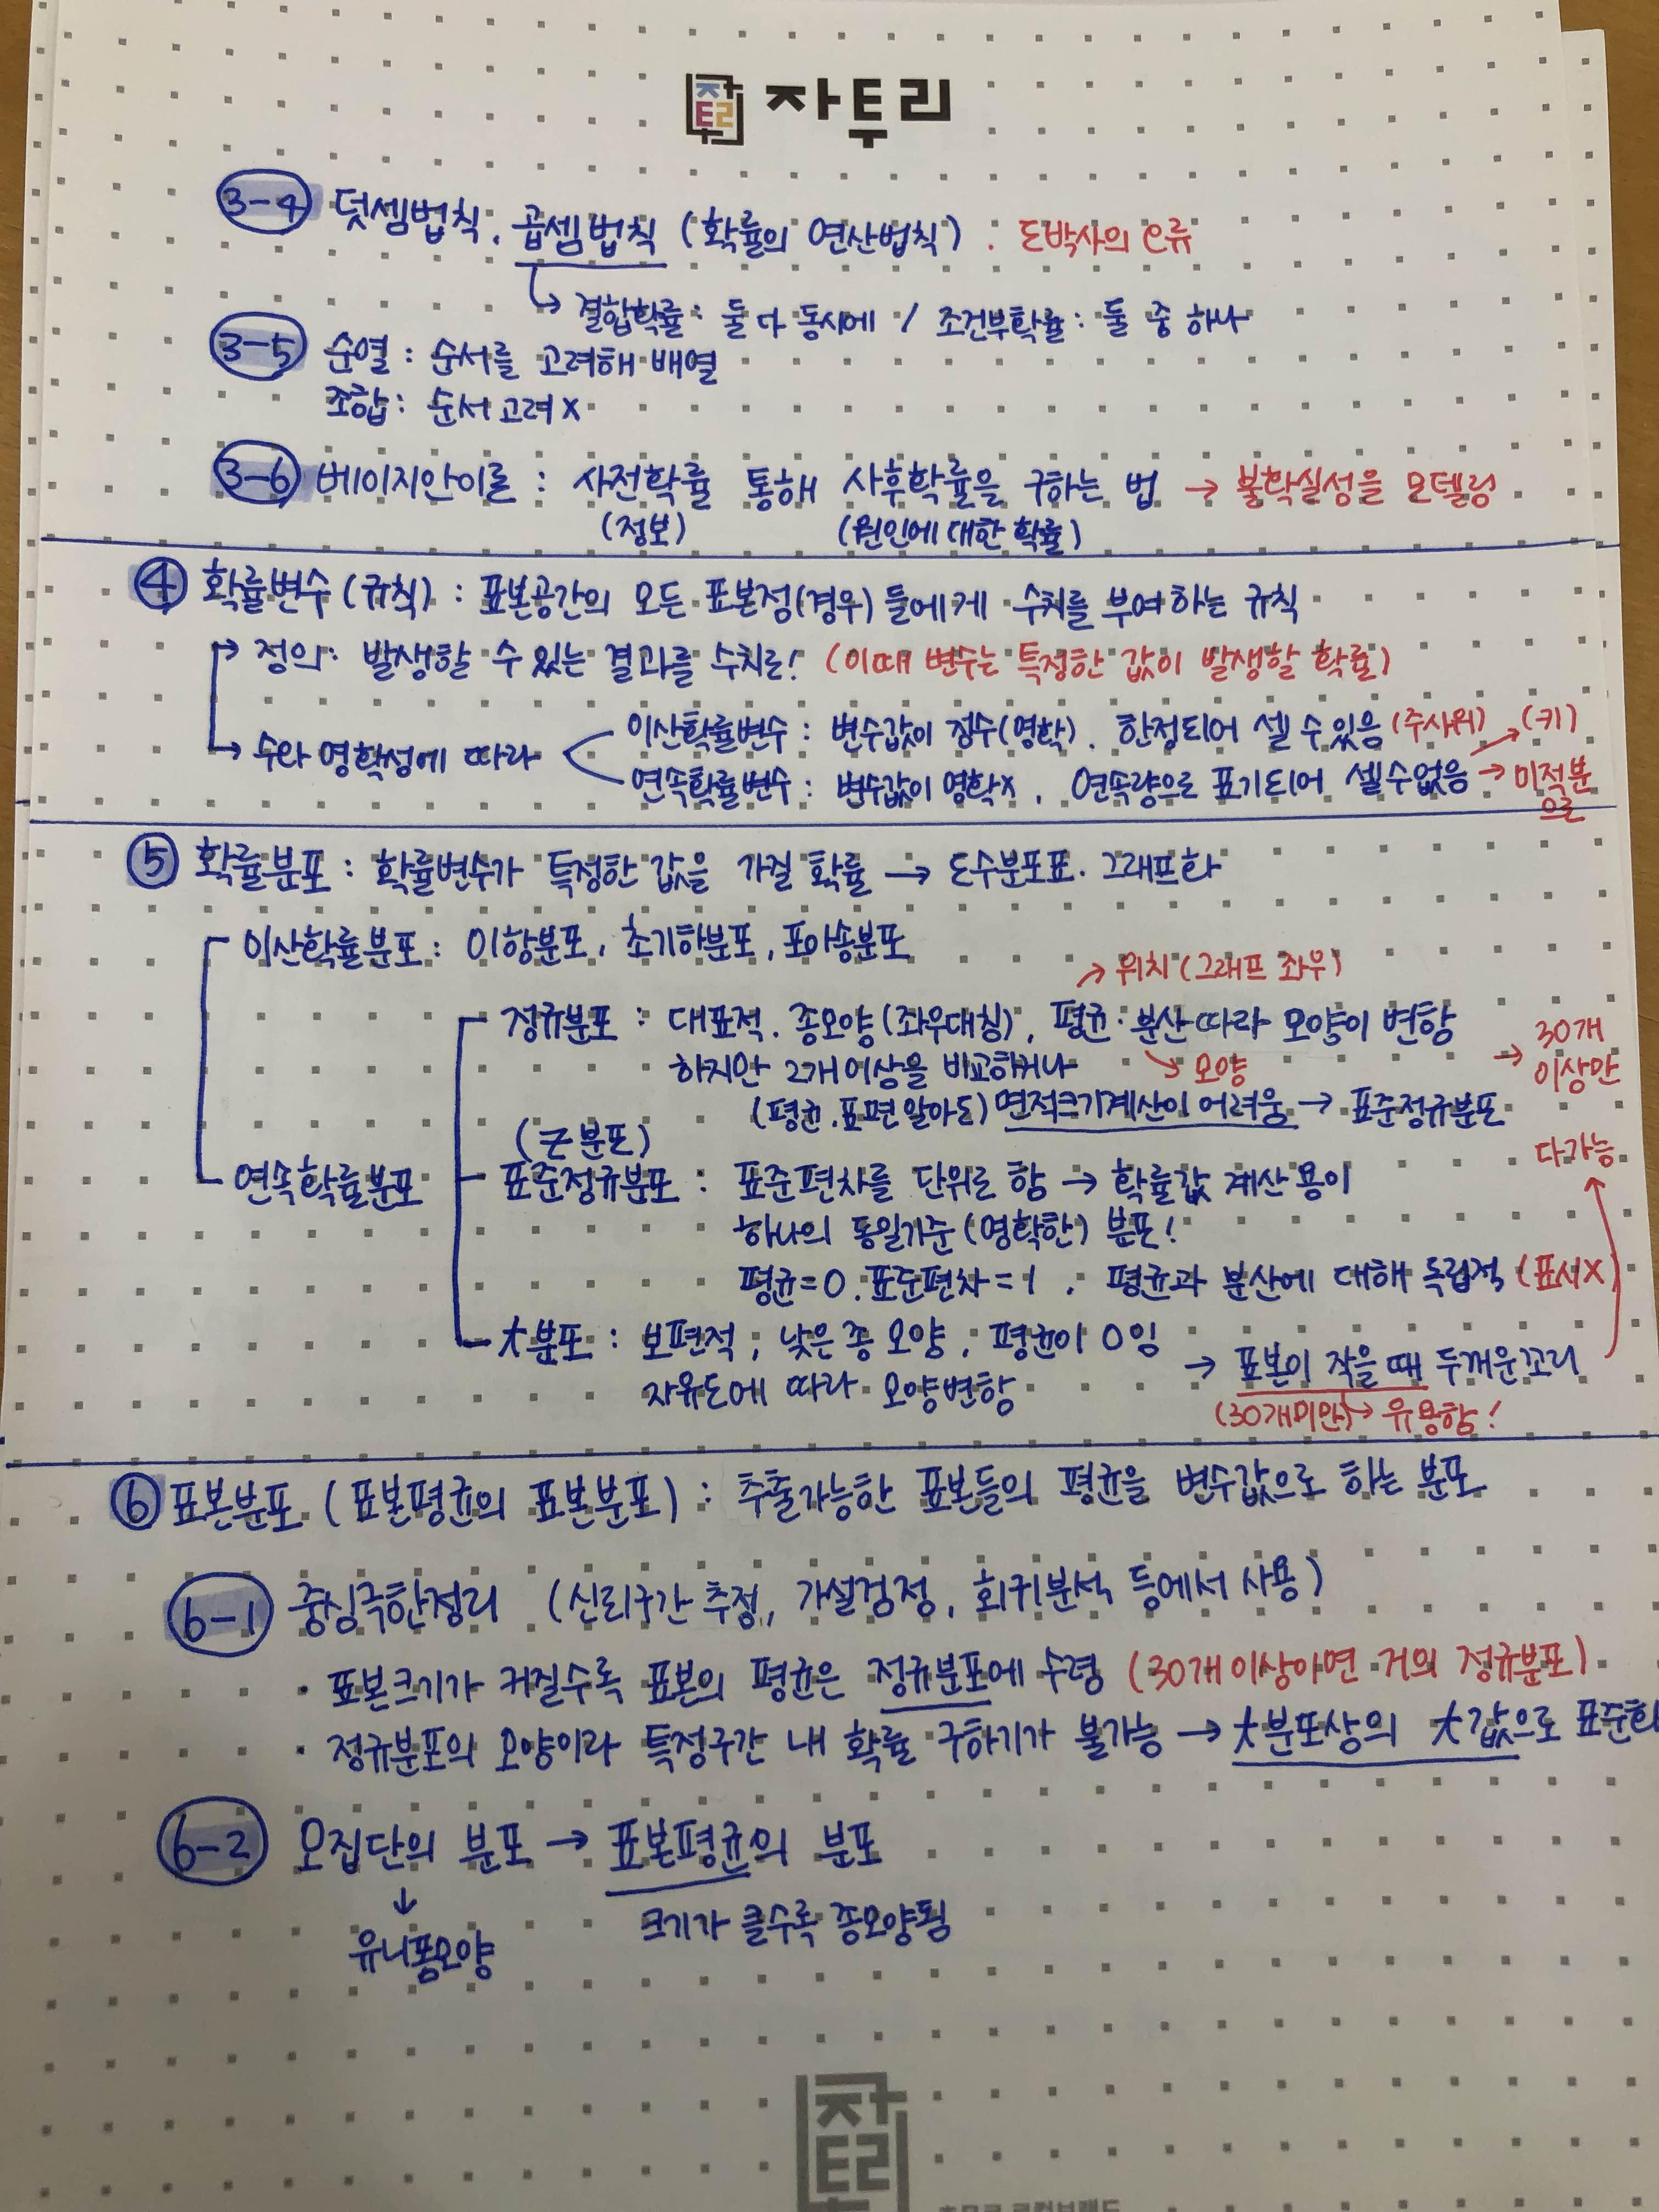 자투리
3-4 덧셈법칙, 곱셈법칙 (확률의 연산법칙). 도박사의 오류
↳ 결합확률: 둘 다 동시에 / 조건부확률: 둘 중 하나
3-5 순열 : 순서를 고려해 배열
조합 : 순서 고려 X
3-6 베이지안이론 : 사전확률 통해 사후확률을 구하는 법 → 불확실성을 모델링
(정보) (원인에 대한 확률)
④ 확률변수 (규칙) : 표본공간의 모든 표본점(경우)들에게 수치를 부여하는 규칙
→ 정의: 발생할 수 있는 결과를 수치로! (이때 변수는 특정한 값이 발생할 확률)
이산확률변수 : 변수값이 정수(명확). 한정되어 셀 수 있음 (주사위) (키)
→ 수와 명확성에 따라
연속확률변수 : 변수값이 명확X, 연속량으로 표기되어 셀 수 없음 → 미적분
으로
⑤ 확률분포 : 확률변수가 특정한 값을 가질 확률 → 도수분포표. 그래프화
이산확률분포 : 이항분포, 초기하분포, 포아송분포
→ 위치 (그래프 좌우)
정규분포 : 대표적. 종모양(좌우대칭), 평균·분산따라 모양이 변함
→ 30개
이상만
하지만 2개이상을 비교하거나 ↘ 모양
(평균.표편 알아도) 면적크기계산이 어려움 → 표준정규분포
(Z분포)
다가능
연속확률분포 표준정규분포 : 표준편차를 단위로 함 → 확률값 계산 용이
하나의 동일기준 (명확한) 분포!
평균=0. 표준편차=1, 평균과 분산에 대해 독립적 (표시X)
t분포 : 보편적, 낮은 종 모양, 평균이 0임
→ 표본이 작을 때 두꺼운꼬리
자유도에 따라 모양변함
(30개미만) → 유용함!
⑥ 표본분포 (표본평균의 표본분포) : 추출가능한 표본들의 평균을 변수값으로 하는 분포
6-1 중심극한정리 (신뢰구간 추정, 가설검정, 회귀분석 등에서 사용)
· 표본크기가 커질수록 표본의 평균은 정규분포에 수렴 (30개 이상이면 거의 정규분포)
· 정규분포의 모양이라 특정구간 내 확률 구하기가 불가능 → t분포상의 t값으로 표준화
6-2 모집단의 분포 → 표본평균의 분포
↓
크기가 클수록 종모양됨
유니폼모양
자투리